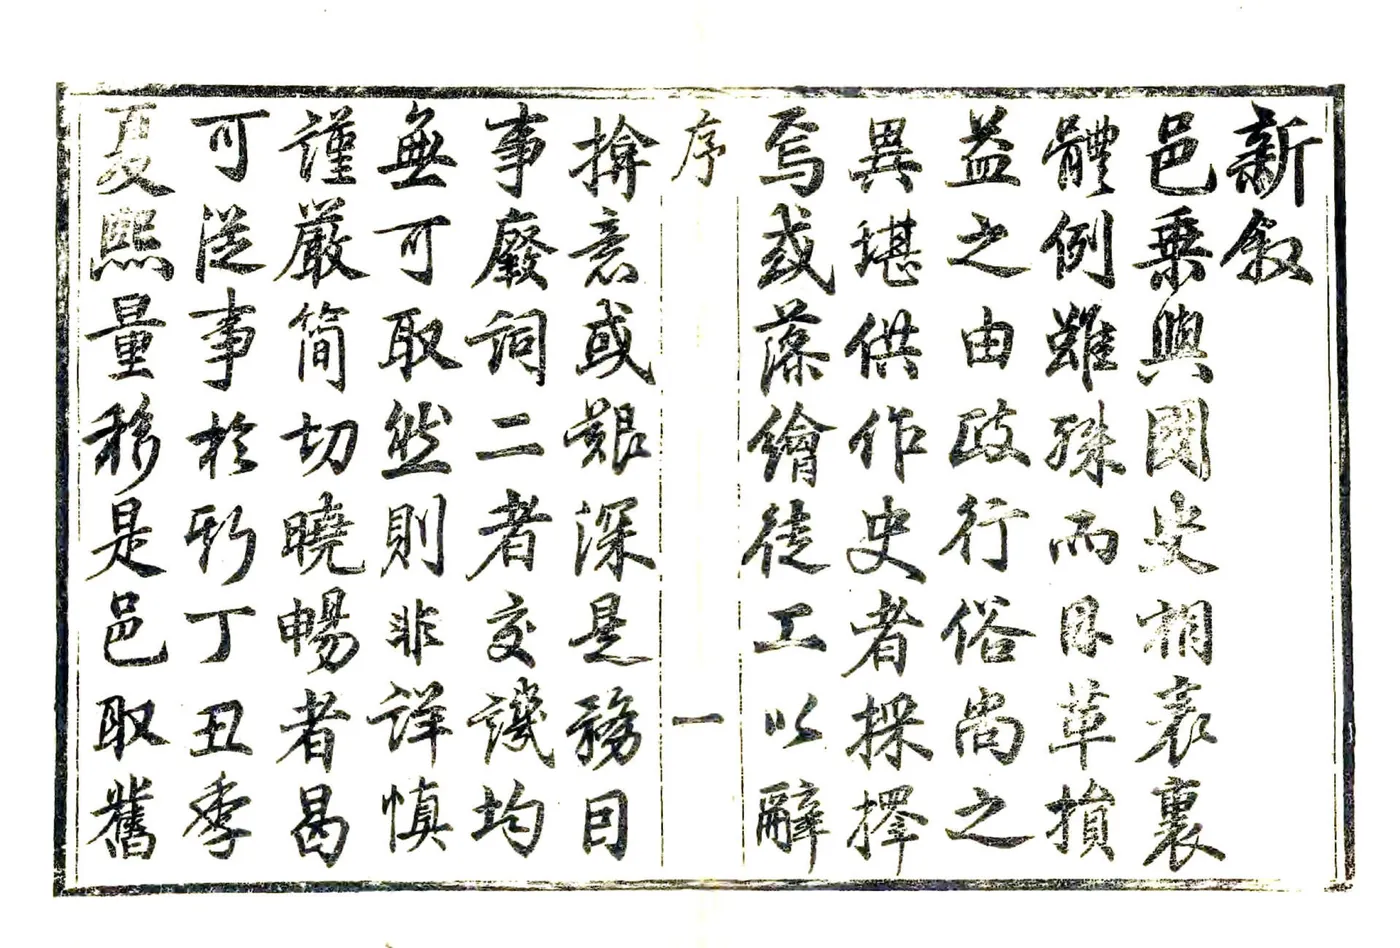 新叙
邑乗與國史相表裏
體例雖殊而因革損
益之由政行俗尚之
異堪供作史者採擇
焉或藻繪徒工以辭
序
一
揜意或艱深是務因
事廢詞二者交譏均
無可取然則非詳慎
謹嚴簡切曉暢者曷
可從事於斯丁丑季
夏熙量移是邑取舊